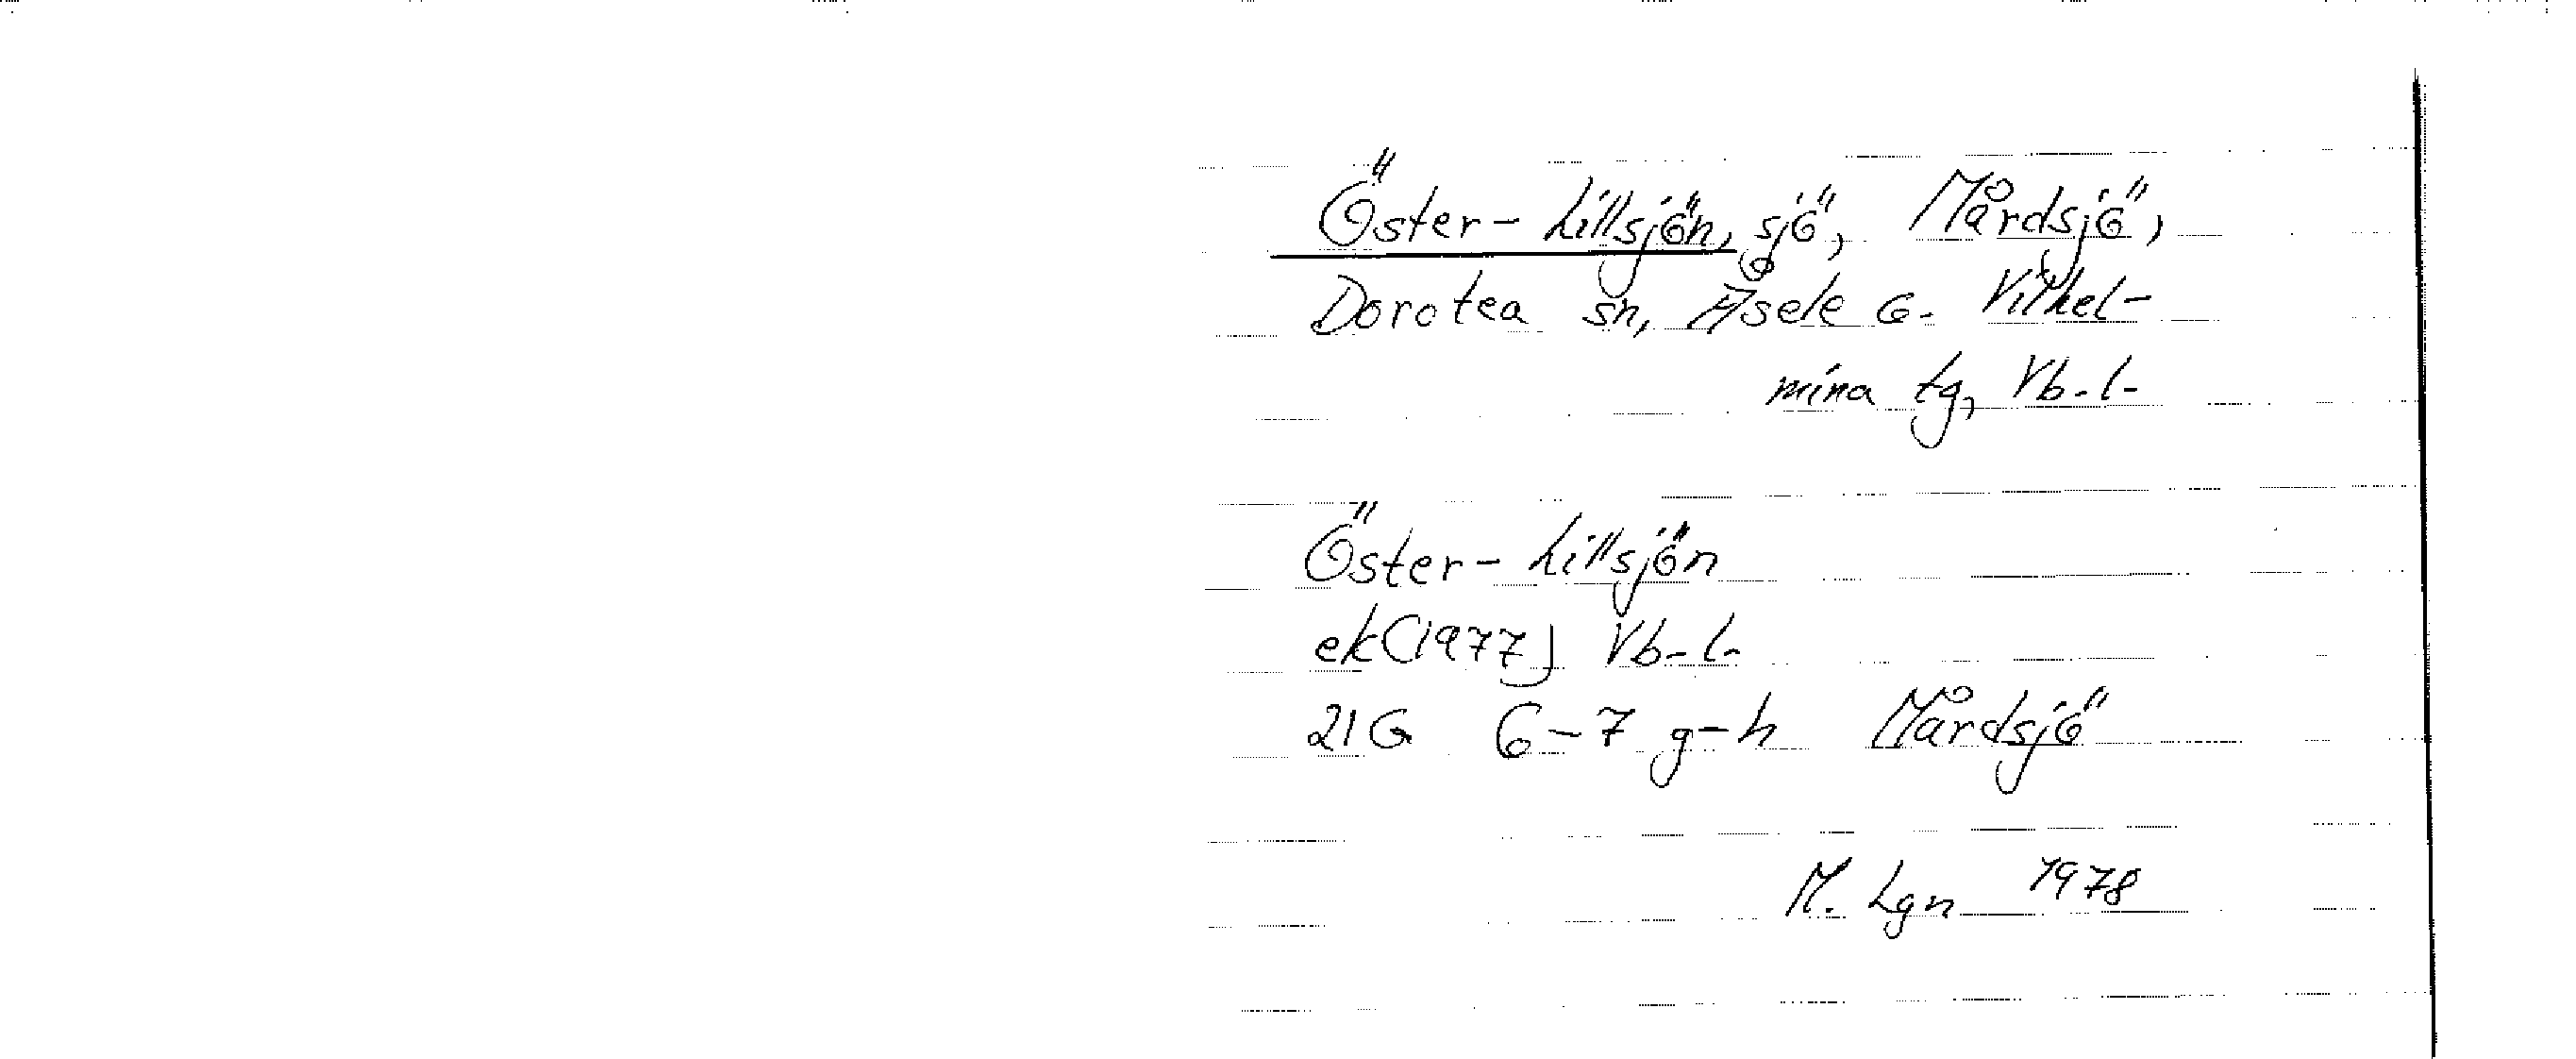 Öster-Lillsjön, sjö, Mårdsjö,
Dorotea sn, Åsele o. Vilhel-
mina tg, Vb. l.
Öster-Lillsjön
ek (1977) Vb. l.
21 G 6-7 g-h Mårdsjö
M. Lgn 1978